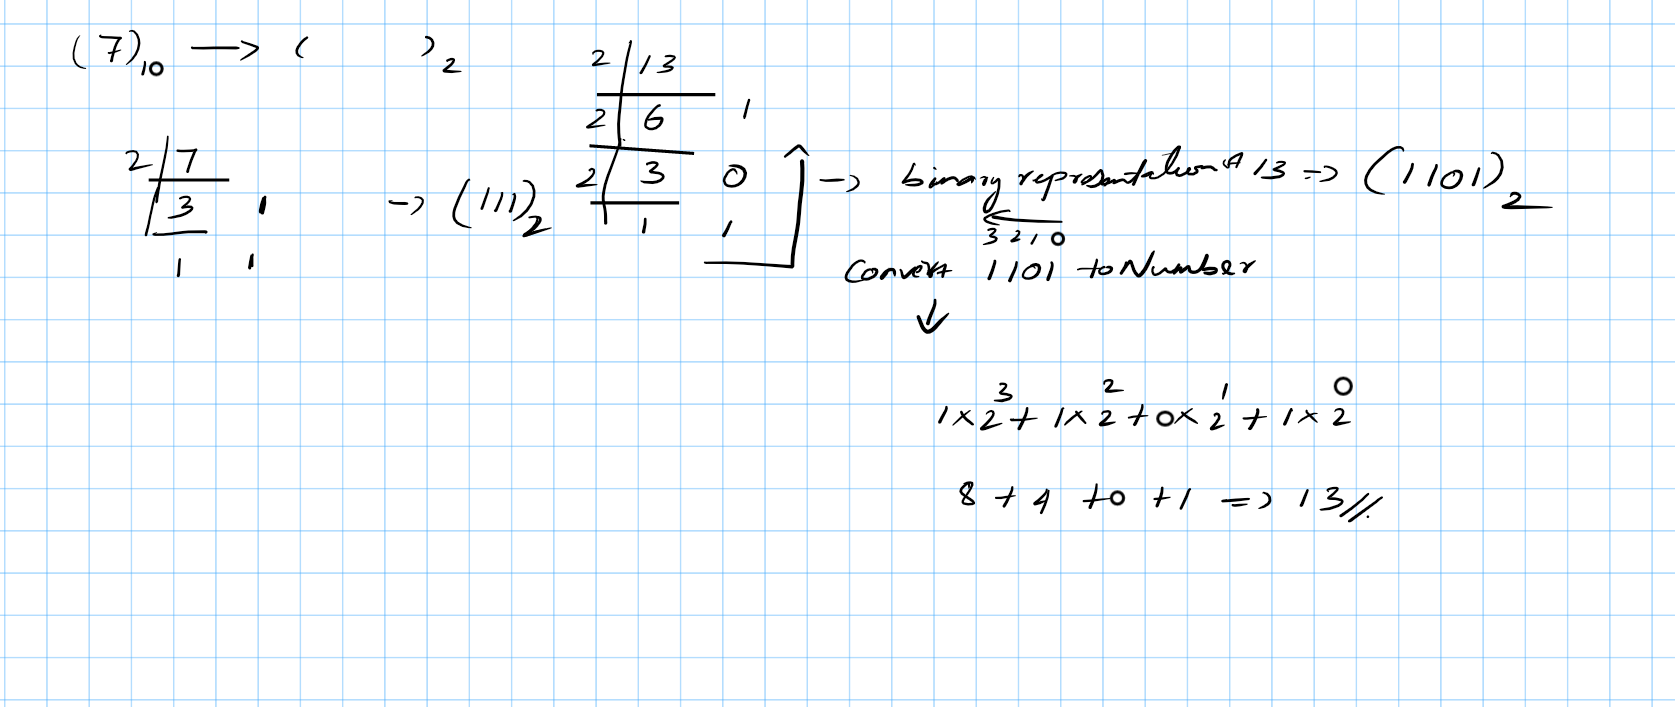 (7)10 → (      )2
2 | 7
3   1
1   1
→ (111)2
2 | 13
2 | 6   1
2 | 3   0
1   1
→ binary representation of 13 → (1101)2
3 2 1 0
Convert 1101 to Number
↓
1×2³ + 1×2² + 0×2¹ + 1×2⁰
8 + 4 + 0 + 1 => 13//